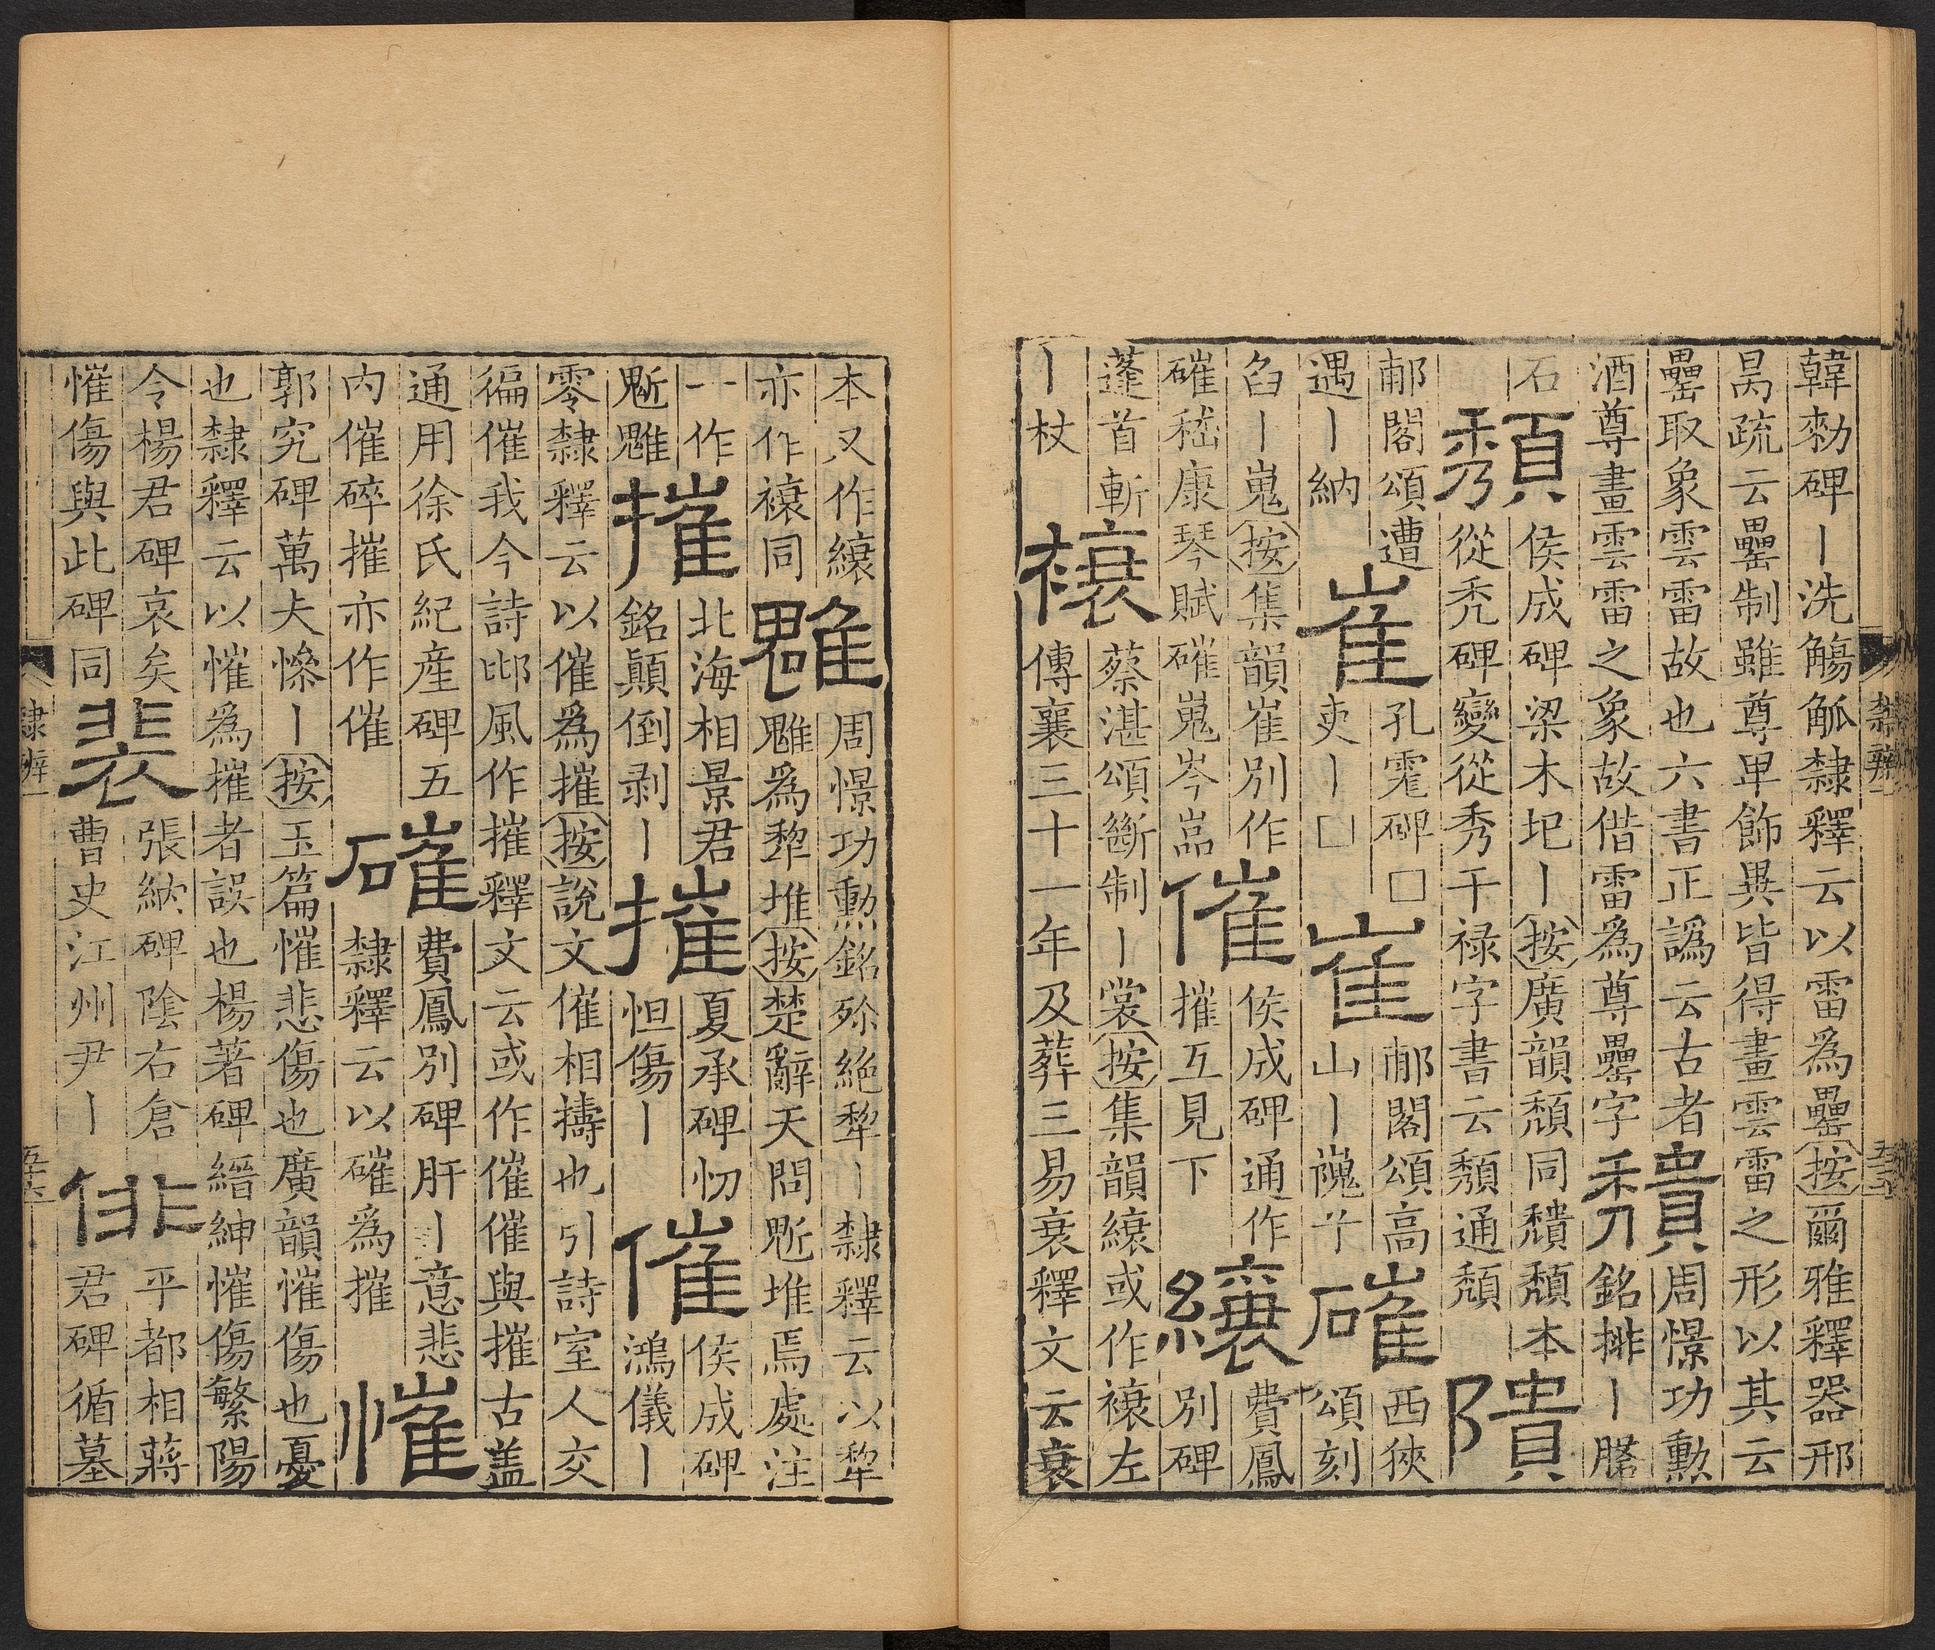 韓勑碑丨洗觴觚隸釋云以雷為罍按爾雅釋器邢
昺疏云罍制雖尊卑飾異皆得畫雲雷之形以其云
罍取象雲雷故也六書正譌云古者
酒尊畫雲雷之象故借雷為尊罍字
穨
周憬功勳
銘排丨
石
頽
侯成碑梁木圯丨按廣韻頹同穨頹本
從禿碑變從秀干禄字書云頽通頹
隤
郙閣頌遭
遇丨納
崔
孔碑□
吏丨□
崔
郙閣頌高
山丨巍兮
磪
西狹
頌刻
臽丨嵬按集韻崔別作
磪嵇康琴賦磪嵬岑嵓
催
侯成碑通作
摧互見下
縗
費鳳
別碑
蓬首斬
丨杖
䙑
蔡湛頌斷制丨裳按集韻縗或作䙑左
傳襄三十一年及葬三易衰釋文云衰
本又作縗
亦作䙑同
魋
周憬功勳銘殄絶犂丨隸釋云以犂
魋為犂堆按楚辭天問鬿堆焉處注
一作
鬿魋
摧
北海相景君
銘顛倒剥丨
摧
夏承碑忉
怛傷丨
催
侯成碑
鴻儀丨
零隸釋云以催為摧按説文催相擣也引詩室人交
徧催我今詩邶風作摧釋文云或作催催與摧古盖
通用徐氏紀産碑五
内催碎摧亦作催
磪
費鳳別碑肝丨意悲
隸釋云以磪為摧
慛
郭究碑萬夫慘丨按玉篇慛悲傷也廣韻慛傷也憂
也隸釋云以慛為摧者誤也楊著碑縉紳慛傷繁陽
令楊君碑哀矣
慛傷與此碑同
裴
張納碑陰右倉
曹史江州尹丨
俳
平都相蔣
君碑循墓
隸辨一
五十六